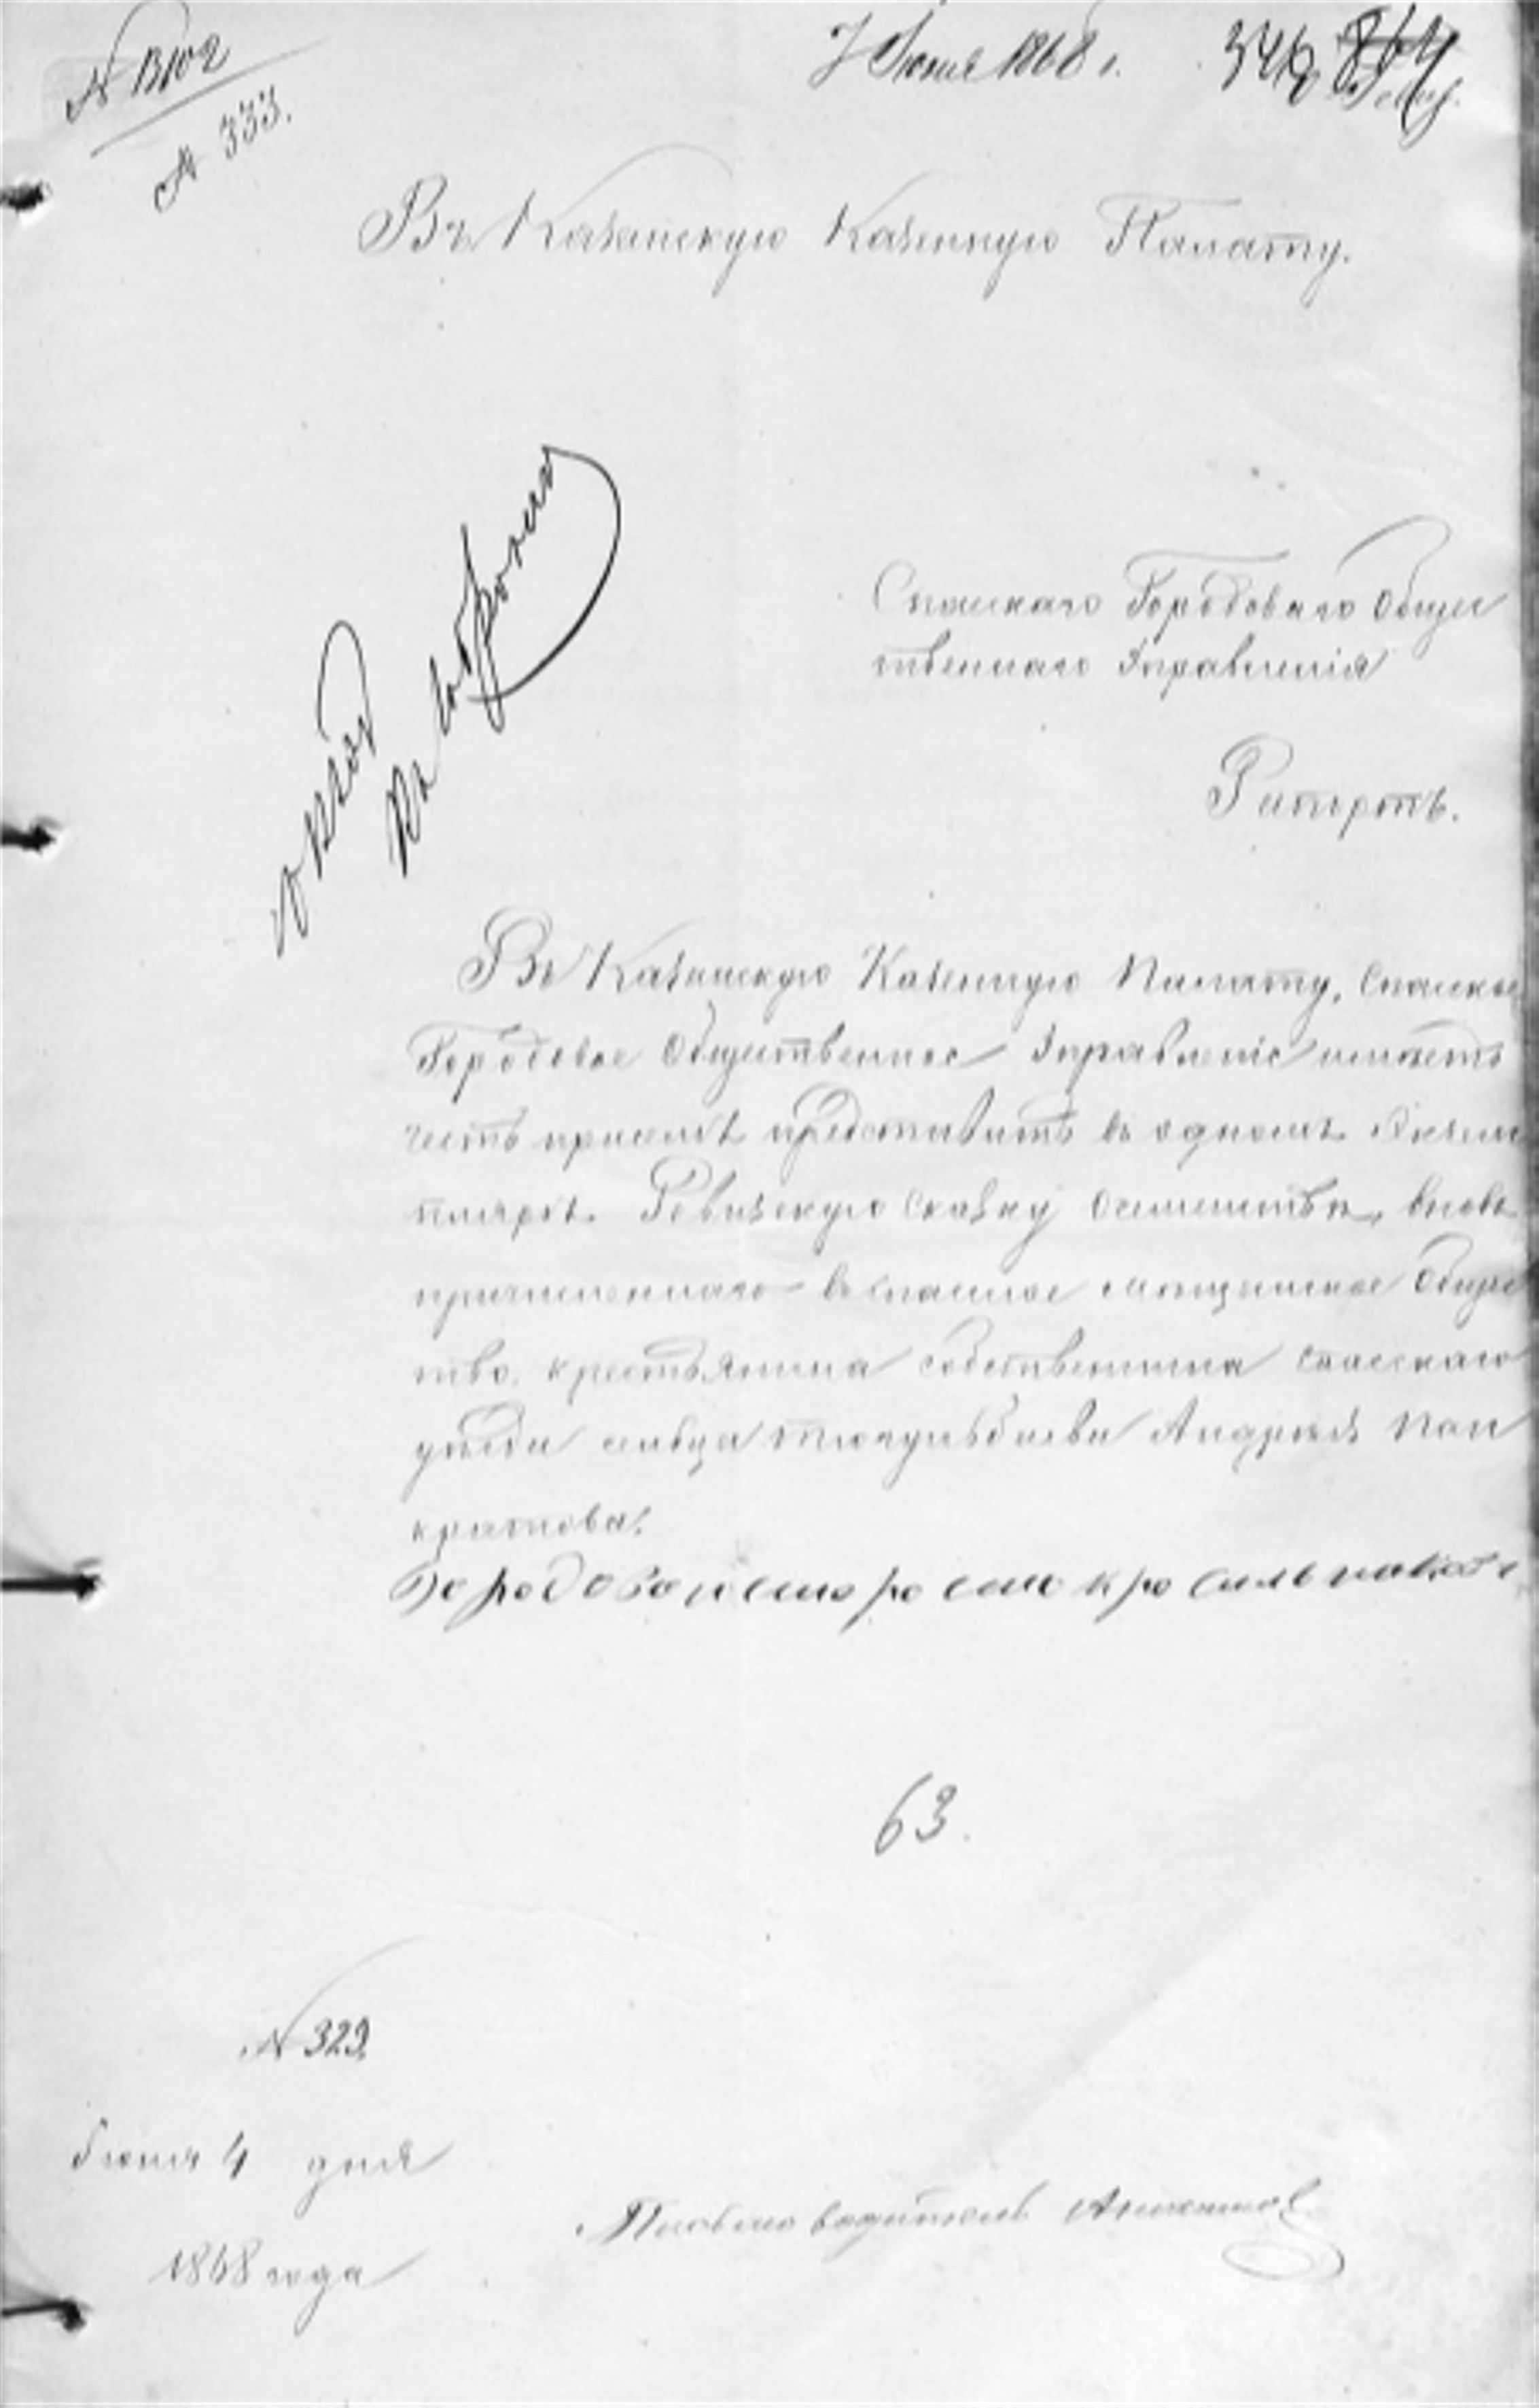 № 333.
7 Июня 1868 г.
346
Въ Казанскую Казенную Палату.
Спаскаго Городоваго Общес
твеннаго Управленія
Рапортъ.
Въ Казанскую Казенную Палату, Спаское
Городовое Общественное Управленіе имѣетъ
честь присемъ представить въ одномъ Экзем
плярѣ Ревизскую Сказку о семействѣ, вновь
причисленнаго въ спаское мещанское Общес
тво, крестьянина собственника спасскаго
уѣзда сельца Андрея Пан
кратова.
Городовой староста
63.
№ 323.
Іюня 4 дня
1868 года
Письмоводитель